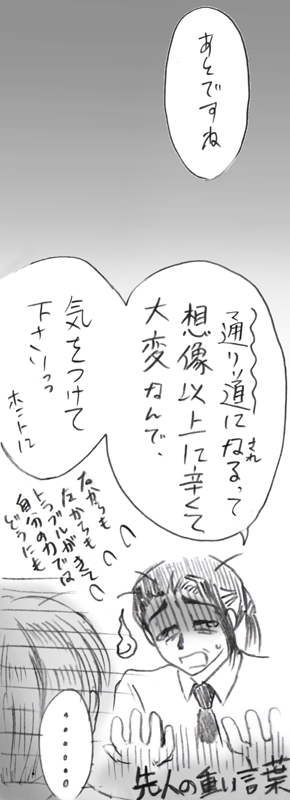 あとですね
通り道になるって
され
想像以上に辛くて
大変なんで、
気をつけて
下さいっっ
ホントに
なからも
なからも
きて
トラブルがでは
自分の力では
どうにも
……
先人の重い言葉